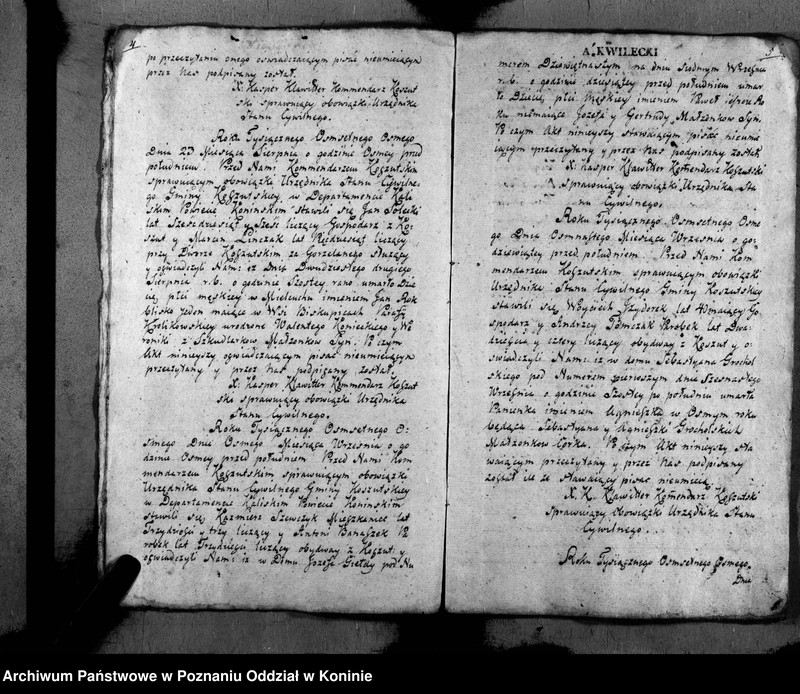 4
po przeczytaniu onego oswiadczaiącym pisać nieumieiącym
przez Nas podpisany został.
X. Kasper Klawitter Kommendarz Koszut
ski sprawuiący obowiązki Urzędnika
Stanu Cywilnego.
Roku Tysiącznego Osmsetnego Osmego
Dnia 23 Miesiąca Sierpnia o godzinie Osmey przed
południem. Przed Nami Kommendarzem Koszutskim
sprawuiącym obowiązki Urzędnika Stanu Cywilne
go Gminy Koszutskiey w Departamencie Kali
skim Powiecie Koninskim Stawili się Jan Solecki
lat Szesdziesiąt y Szesć liczący Gospodarz z Ko
szut y Marcin Linczak lat Pięćdziesiąt liczący
przy Dworze Koszutskim za Gorzelanego służący
y oswiadczyli Nam iż Dnia Dwudziestego drugiego
Sierpnia r.b. o godzinie Szostey rano umarło Dzie
cie płci męskiey w Mieluchu imieniem Jan Rok
blisko ieden maiące w Wsi Biskupicach Parafii
Krolikowskiey urodzone Walentego Konieckiego y We
roniki z Szkudlarkow Małżonkow Syn. Po czym
Akt ninieyszy oświadczaiącym pisać nieumieiącym
przeczytany y przez Nas podpisany został.
X. Kasper Klawitter Kommendarz Koszut
ski sprawuiący obowiązki Urzędnika
Stanu Cywilnego.
Roku Tysiącznego Osmsetnego O:
smego Dnia Osmego Miesiąca Września o go
dzinie Osmey przed południem Przed Nami Kom
mendarzem Koszutskim sprawuiącym obowiązki
Urzędnika Stanu Cywilnego Gminy Koszutskiey
w Departamencie Kaliskim Powiecie Koninskim
stawili się Kazmierz Szewczyk Mieszkaniec lat
Trzydzieści y trzy liczący y Antoni Banaszek Pa
robek lat Trzydzieści liczący obydway z Koszut y
oświadczyli Nam: iż w Domu Jozefa Giełdy pod Nu
A. KWILECKI
5
merem Dziewiętnastym na dniu siodmym Wrześniu
r.b. o godzinie dziesiątey przed południem umar
ło Dziecie płci Męskiey imieniem Paweł iednego Ro
ku niemaiące Jozefa y Gertrudy Małżonkow Syn.
Po czym Akt ninieyszy stawaiącym pisać nieumie
iącym przeczytany y przez Nas podpisany został
X. Kasper Klawitter Komendarz Koszutski
sprawuiący obowiązki Urzędnika Sta
nu Cywilnego.
Roku Tysiącznego Osmsetnego Osme
go Dnia Osmnastego Miesiąca Września o go
dziewiątey przed południem. Przed Nami Kom
mendarzem Koszutskim sprawuiącym obowiązki
Urzędnika Stanu Cywilnego Gminy Koszutskiey
stawili się Woyciech Izydorek lat maiący Go
spodarz y Andrzey Tomczak Parobek lat Dwa
dzieścia y cztery liczący obydway z Koszut y o:
świadczyli Nam: iż w domu Sebastyana Grochol
skiego pod Numerem pierwszym dnia Szesnastego
Września o godzinie Szostey po południu umarła
Panienka imieniem Agnieszka w Osmym roku
będąca Sebastyana y Agnieszki Grocholskich
Małżonkow Corka. Po czym Akt ninieyszy sta
waiącym przeczytany y przez Nas podpisany
został ile że stawaiący pisać nieumieią
X. K. Klawitter Komendarz Koszutski
Sprawuiący Obowiązki Urzędnika Stanu
Cywilnego.
Roku Tysiącznego Osmsetnego Osmego
Dnia
Archiwum Państwowe w Poznaniu Oddział w Koninie